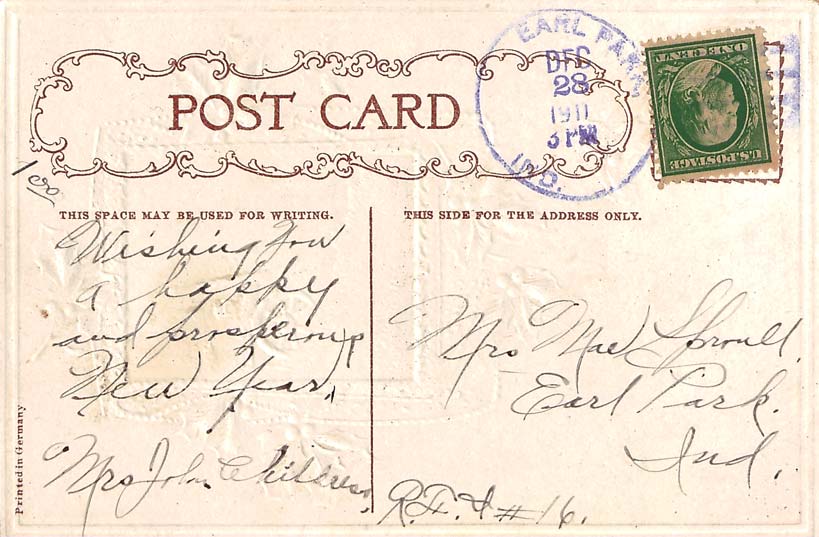 POST CARD
EARL PARK,
DEC
28
1911
3 PM
IND.
ONE CENT
U.S. POSTAGE
1.00
THIS SPACE MAY BE USED FOR WRITING.
Wishing You
a happy
and prosperous
New Year,
Mrs John Childress,
THIS SIDE FOR THE ADDRESS ONLY.
Mrs Mae Sproull,
Earl Park.
Ind,
R.F.D #16.
Printed in Germany